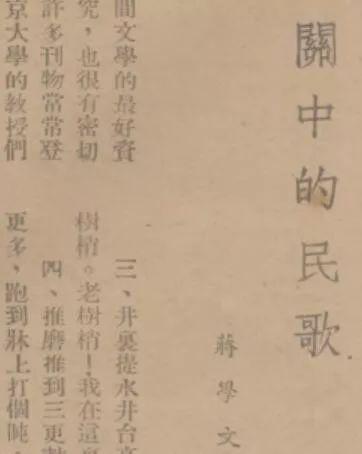 關中的民歌
蔣學文
間文學的最好資
究，也很有密切
許多刊物當常登
京大學的教授們
三、井裏提水井台高
樹梢。老樹梢！我在這
四、推磨推到三更
更多，跑到牀上打個盹，